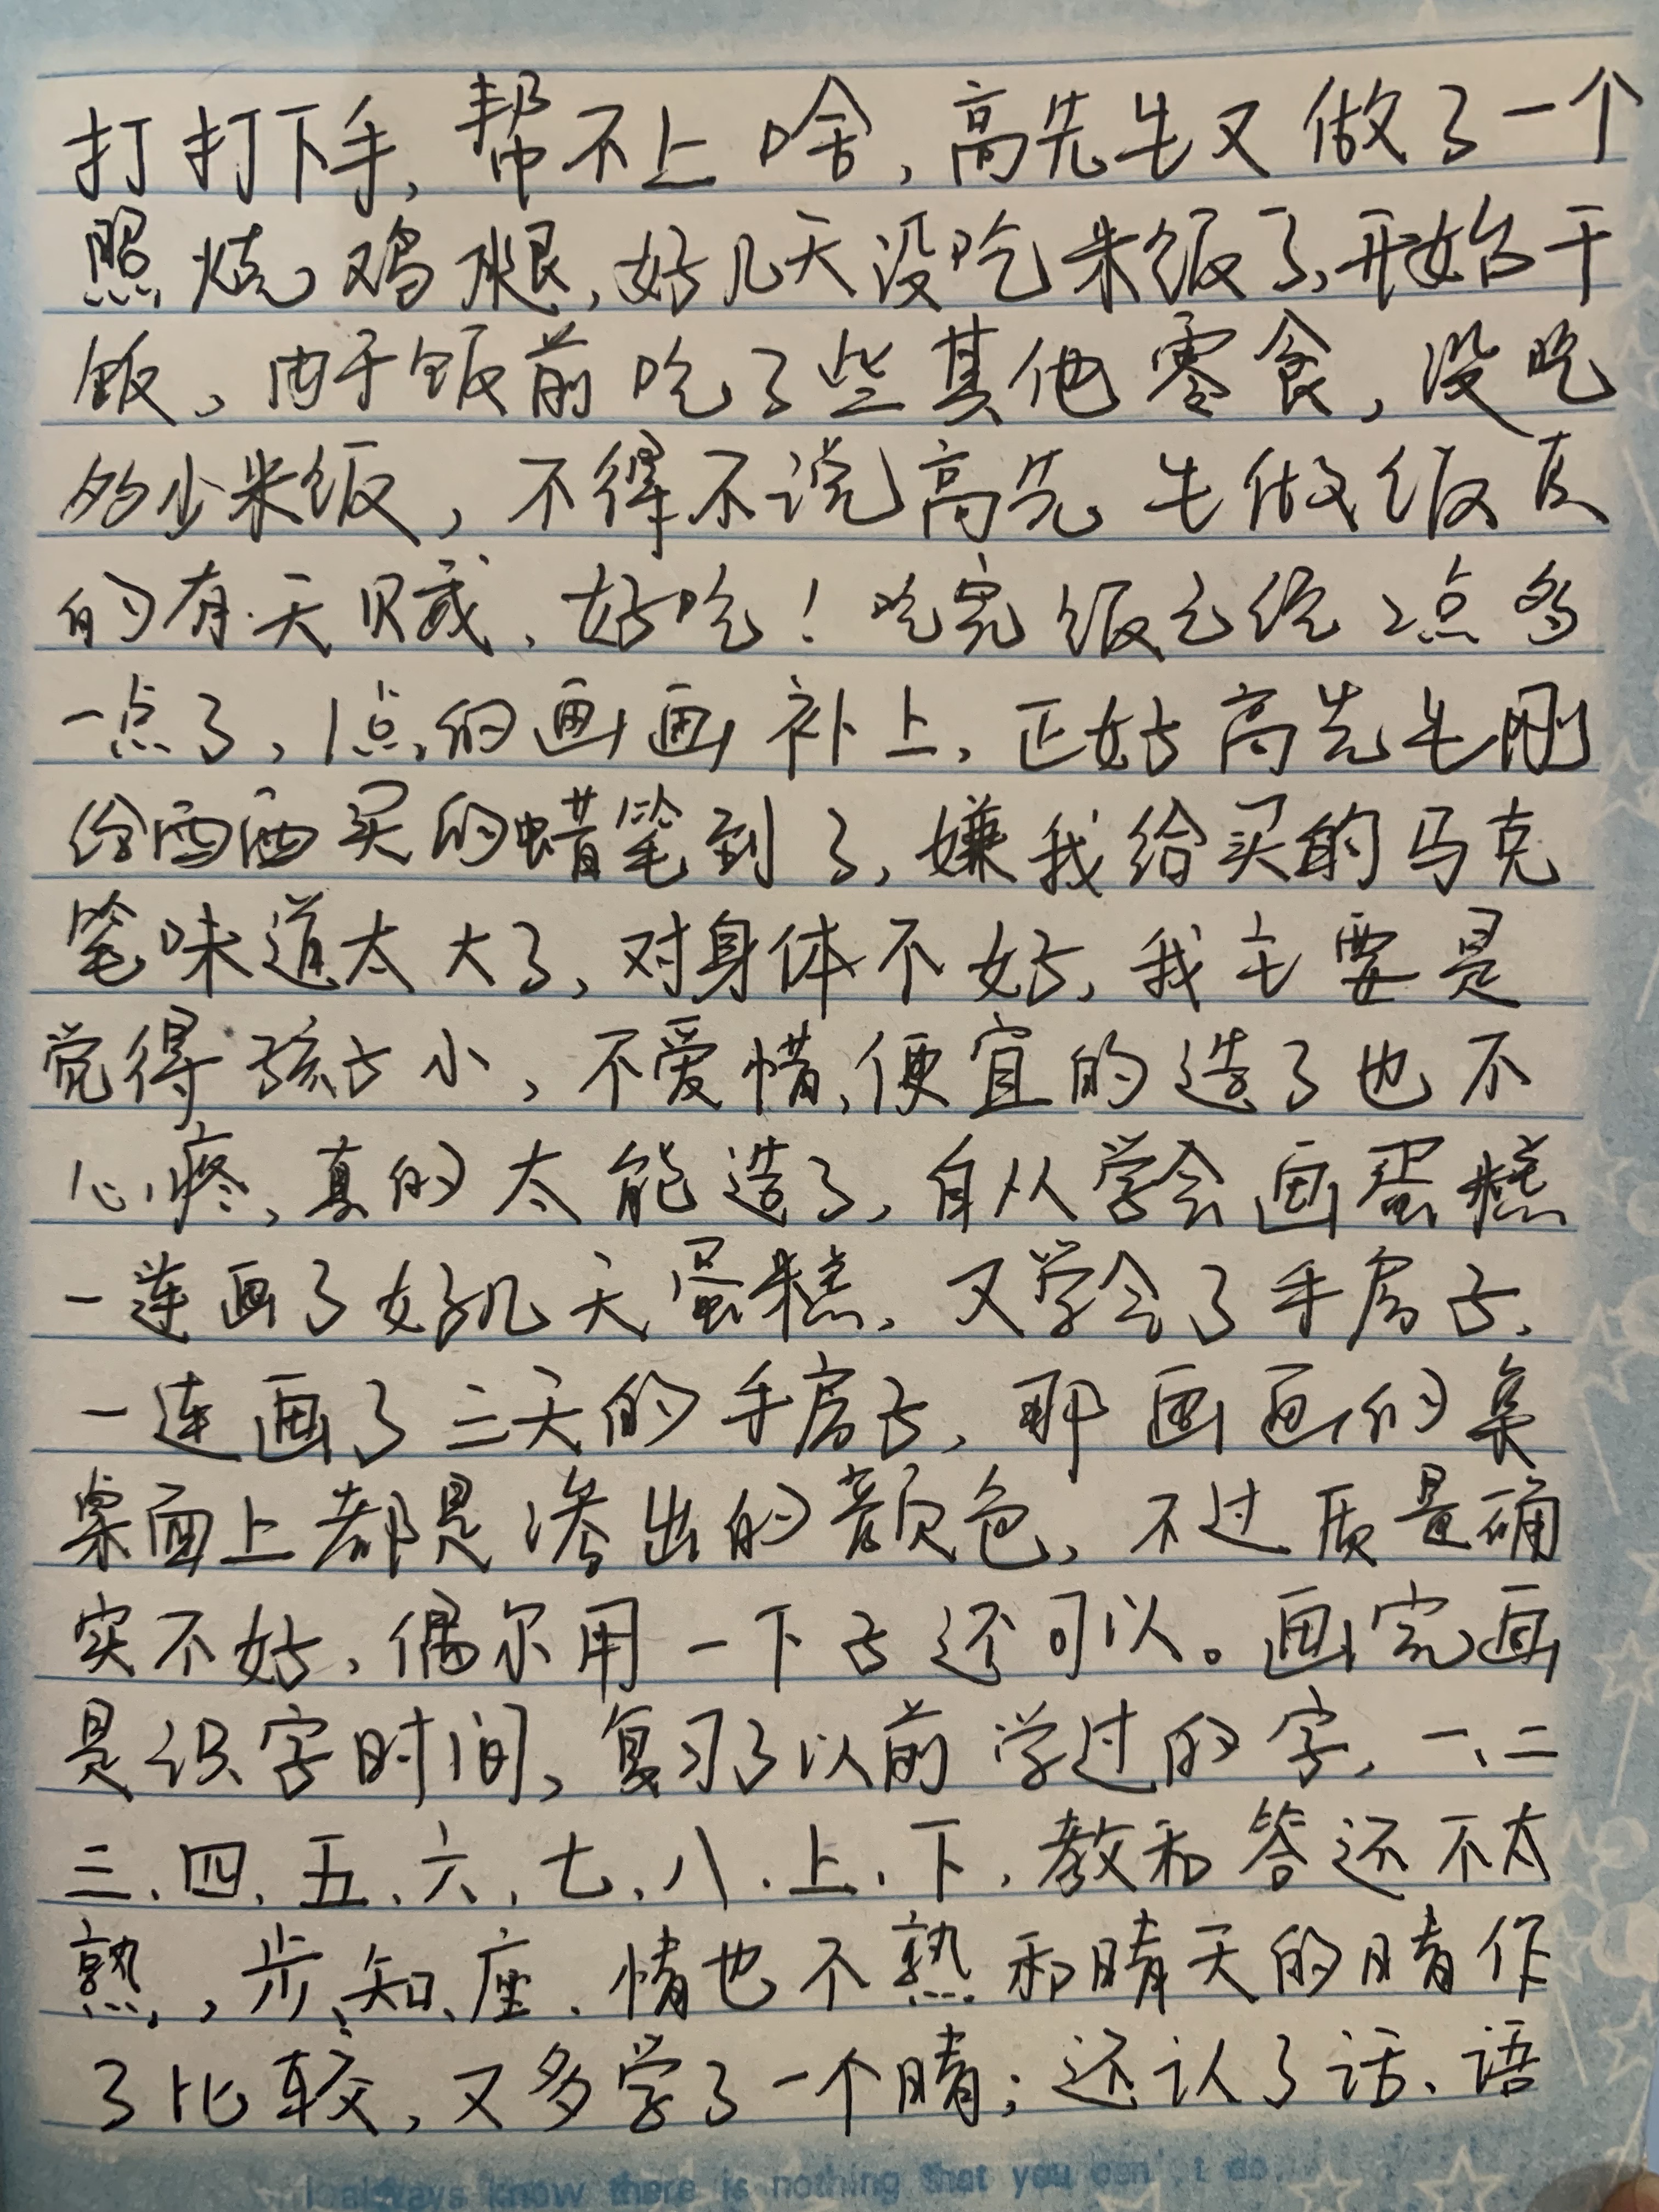 打打下手,帮不上啥,高先生又做了一个
照烧鸡腿,好几天没吃米饭了,开始干
饭,由于饭前吃了些其他零食,没吃
多少米饭,不得不说高先生做饭真
的有天赋,好吃!吃完饭已经2点多
一点了,1点的画画补上,正好高先生刚
给西西买的蜡笔到了,嫌我给买的马克
笔味道太大了,对身体不好,我主要是
觉得孩子小,不爱惜,便宜的造了也不
心疼,真的太能造了,自从学会画蛋糕
一连画了好几天蛋糕,又学会了手房子,
一连画了三天的手房子,那画画的桌
桌面上都是渗出的颜色,不过质量确
实不好,偶尔用一下子还可以。画完画
是识字时间,复习了以前学过的字,一、二
三、四、五、六、七、八、上、下,教和答还不太
熟,步、知、座、情也不熟和晴天的晴作
了比较,又多学了一个晴;还认了话、语
I always know there is nothing that you can't do.